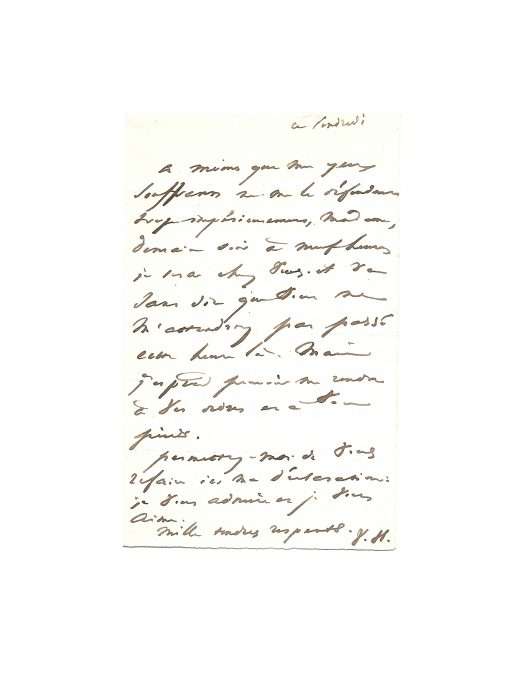 ce Vendredi
a moins que mes yeux
souffrans ne me le défendent
trop impérieusement, madame,
demain soir à neuf heures
je serai chez vous. Il va
sans dire que vous ne
m'attendrez pas passé
cette heure là. Mais
j'espère pouvoir me rendre
à vos ordres et à vos
pieds.
permettez-moi de vous
refaire ici ma déclaration:
je vous admire et je vous
aime.
Mille tendres respects. V. H.